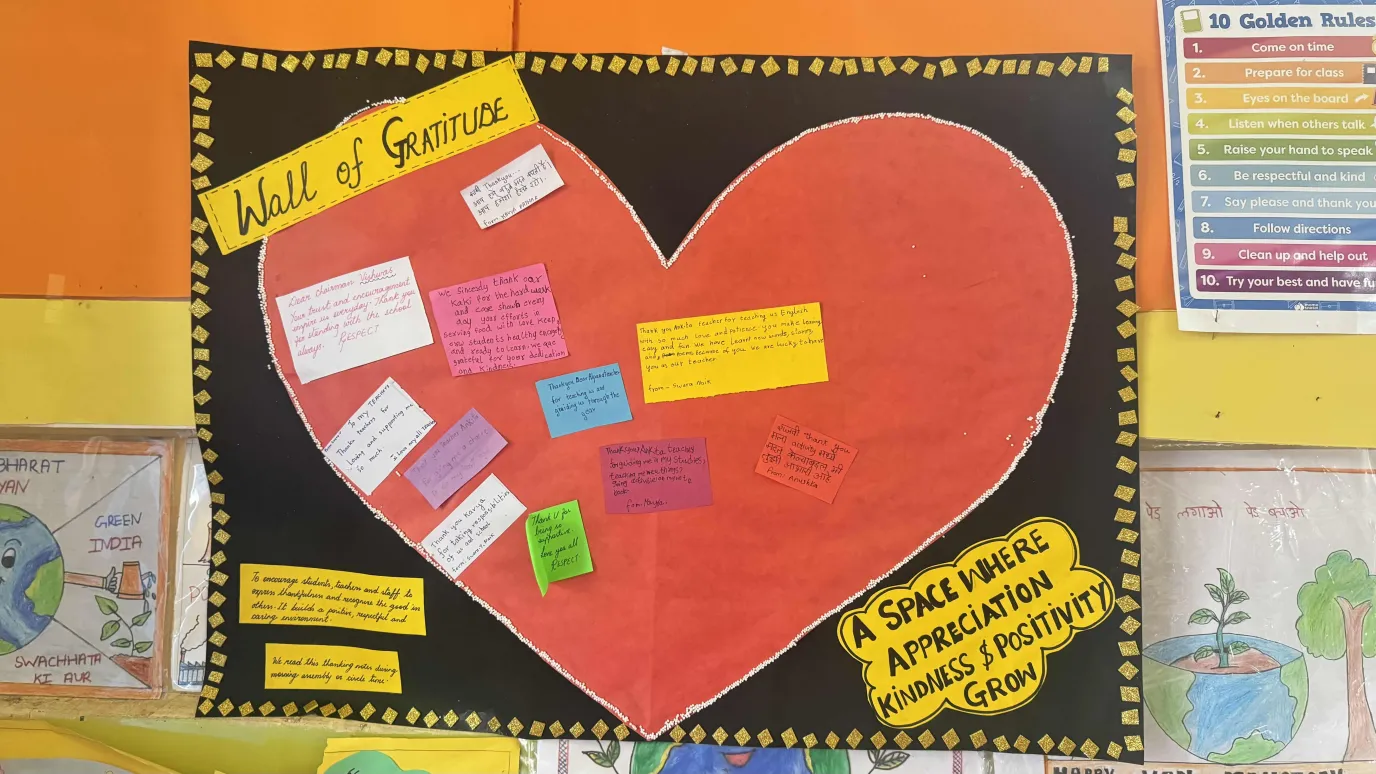 Wall of GRATITUDE
Thankyou...
आप हमेशा हँसते रहो.
Dear chairman Vishwas
Your trust and encouragement
inspire us everyday. Thank you
for standing with the school
always.
RESPECT
We sincerly thank our
Kaki for the hard work
and care shows every
day your efforts in
serving food with love keep
our students healthy energetic
and ready to learn. we are
grateful for your dedication
and kindness.
Thank you Ankita teacher for teaching us English
with so much love and patience. you make learning
easy and fun. We have learnt new words, stories,
and because of you. We are lucky to have
you as our teacher.
from - Swara More
Thankyou Dear teacher
for teaching us and
guiding us through the
year
To MY TEACHERS
Thanks teachers for
Loving and supporting me
so much
I love my all teacher
Thank you Kavya
for taking responsibilities
of us and school
from: Swara. More
Thank U for
being so
supportive
love you all
RESPECT
Thankyou Ankita teacher
for guiding me in my studies,
teaching me new things,
book.
from
Thank you
मला activity मध्ये
मदत केल्याबद्दल मी
तुझी आभारी आहे
From: Anushka
To encourage students, teachers and staff to
express thankfulness and recognize the good in
others. It builds a positive, respectful and
caring environment.
We read this thanking notes during
morning assembly or circle time.
A SPACE WHERE
APPRECIATION
KINDNESS $ POSITIVITY
GROW
10 Golden Rules
1. Come on time
2. Prepare for class
3. Eyes on the board
4. Listen when others talk
5. Raise your hand to speak
6. Be respectful and kind
7. Say please and thank you
8. Follow directions
9. Clean up and help out
10. Try your best and have fu
BHARAT
YAN
GREEN
INDIA
SWACHHATA
KI AUR
पेड लगाओ पेड बचाओ
HAPPY